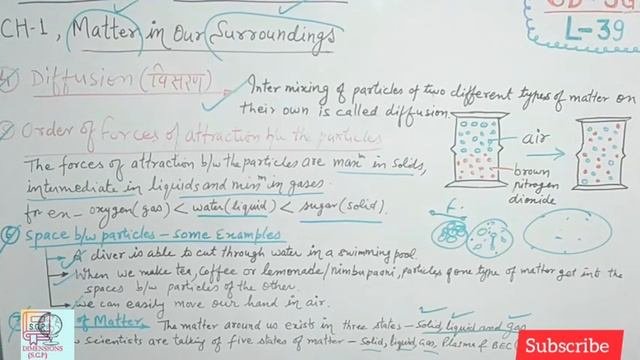 CH-1, Matter in Our Surroundings
L-39
Diffusion (विसरण) Inter mixing of particles of two different types of matter on
their own is called diffusion.
Order of forces of attraction b/w the particles
air
brown
nitrogen
dioxide
The forces of attraction b/w the particles are maxm in solids,
intermediate in liquids and minm in gases.
for ex- oxygen(gas) < water(liquid) < sugar(solid).
Space b/w particles - some Examples
A diver is able to cut through water in a swimming pool.
When we make tea, coffee or lemonade/nimbupaani, particles of one type of matter get into the
spaces b/w particles of the other.
We can easily move our hand in air.
of Matter The matter around us exists in three states - solid, liquid and gas
scientists are talking of five states of matter - Solid, liquid, Gas, Plasma & BEC
S.G.P
DIMENSIONS
(S.G.P)
Subscribe